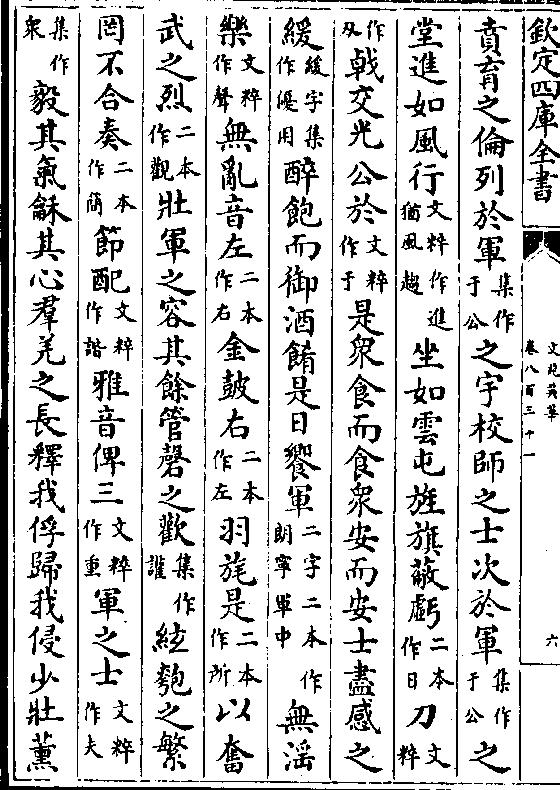 欽定四庫全書
文苑英華
卷八百三十一
六
賁育之倫列於軍集作于公之宇校師之士次於軍集作于公之
堂進如風行文粹作進猶風趨坐如雲屯旌旗蔽虧二本作日刀文粹
作㸚戟交光公於文粹作于是衆食而食衆安而安士盡感之
緩緩字集作優用醉飽而御酒餚是日饗軍二字二本作朗寧軍中無滛
樂文粹作聲無亂音左二本作右金鼓右二本作左羽旄是二本作所以奮
武之烈二本作觀壯軍之容其餘管磬之歡集作讙絃匏之繁
罔不合奏二本作簡節配文粹作諧雅音俾三文粹作重軍之士文粹作夫
集作衆毅其氣龢其心羣羌之長釋我俘歸我侵少壯薰